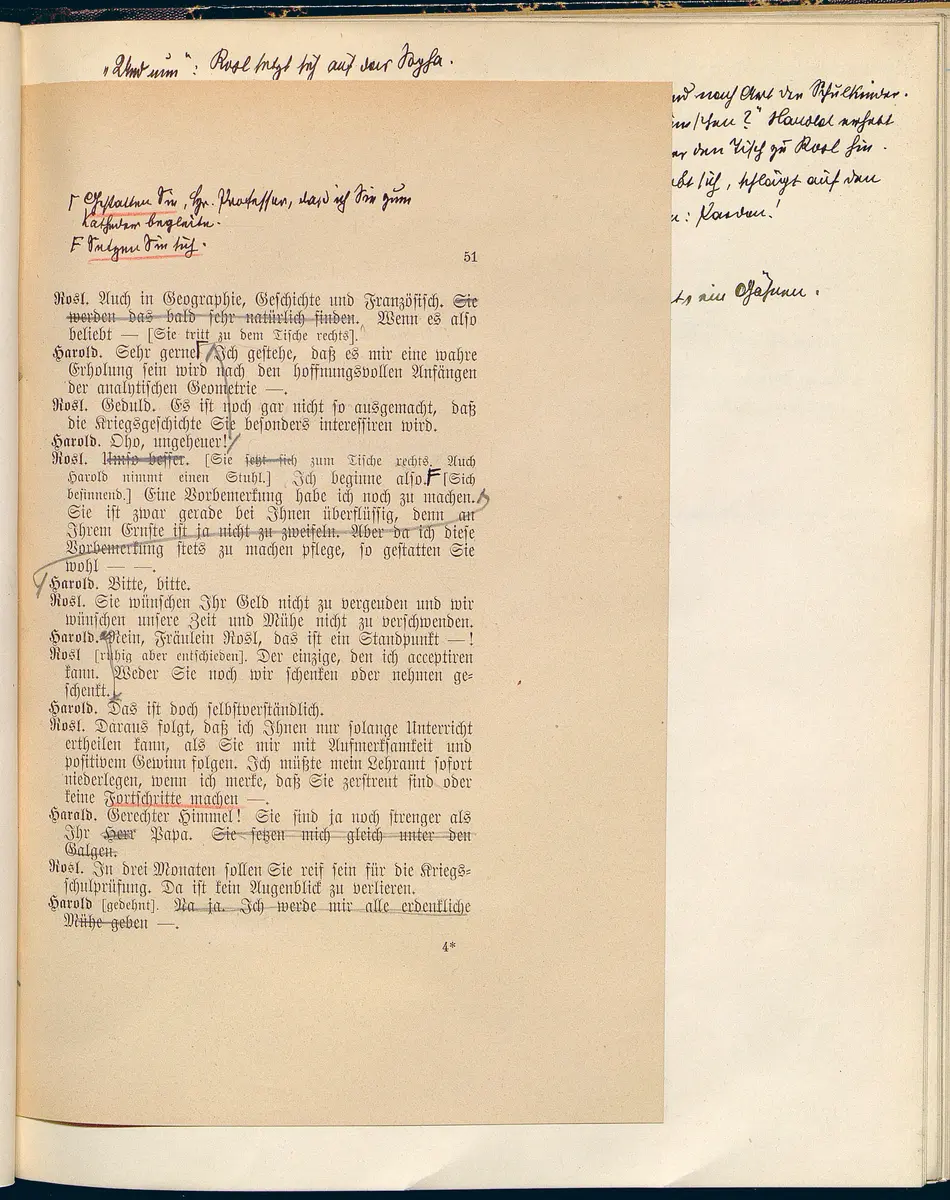 „Und nun": Rosl setzt sich auf das Sopha.
nd nach Art der Schulkinder.
Harold erhebt
den Tisch zu Rosl hin.
sich, schlägt auf den
: Pardon!
ein Gähnen.
Γ Gestatten Sie, Hr. Professor, daß ich Sie zum
Katheder begleite.
F Setzen Sie sich.
51
Rosl. Auch in Geographie, Geschichte und Französisch. Sie
werden das bald sehr natürlich finden. Wenn es also
beliebt — [Sie tritt zu dem Tische rechts].
Harold. Sehr gerne! Ich gestehe, daß es mir eine wahre
Erholung sein wird nach den hoffnungsvollen Anfängen
der analytischen Geometrie —.
Rosl. Geduld. Es ist noch gar nicht so ausgemacht, daß
die Kriegsgeschichte Sie besonders interessiren wird.
Harold. Oho, ungeheuer!
Rosl. Umso besser. [Sie setzt sich zum Tische rechts. Auch
Harold nimmt einen Stuhl.] Ich beginne also. F [Sich
besinnend.] Eine Vorbemerkung habe ich noch zu machen.
Sie ist zwar gerade bei Ihnen überflüssig, denn an
Ihrem Ernste ist ja nicht zu zweifeln. Aber da ich diese
Vorbemerkung stets zu machen pflege, so gestatten Sie
wohl — —.
Harold. Bitte, bitte.
Rosl. Sie wünschen Ihr Geld nicht zu vergeuden und wir
wünschen unsere Zeit und Mühe nicht zu verschwenden.
Harold. Nein, Fräulein Rosl, das ist ein Standpunkt —!
Rosl [ruhig aber entschieden]. Der einzige, den ich acceptiren
kann. Weder Sie noch wir schenken oder nehmen ge-
schenkt.
Harold. Das ist doch selbstverständlich.
Rosl. Daraus folgt, daß ich Ihnen nur solange Unterricht
ertheilen kann, als Sie mir mit Aufmerksamkeit und
positivem Gewinn folgen. Ich müßte mein Lehramt sofort
niederlegen, wenn ich merke, daß Sie zerstreut sind oder
keine Fortschritte machen —.
Harold. Gerechter Himmel! Sie sind ja noch strenger als
Ihr Herr Papa. Sie setzen mich gleich unter den
Galgen.
Rosl. In drei Monaten sollen Sie reif sein für die Kriegs-
schulprüfung. Da ist kein Augenblick zu verlieren.
Harold [gedehnt]. Na ja. Ich werde mir alle erdenkliche
Mühe geben —.
4*